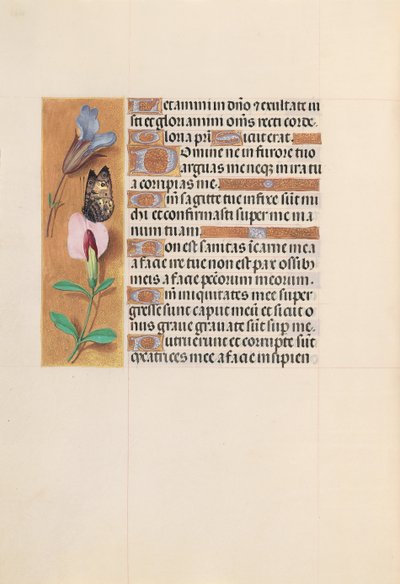 Letamini in dño ⁊ exultate iu
sti et gloriamini om̃s recti corde.
Gloria pr̃i Sicut erat.
Domine ne in furore tuo
arguas me neq; in ira tu
a corripias me.
Qm̃ sagitte tue infixe sũt mi
chi et confirmasti super me ma
num tuam.
Non est sanitas ĩ carne me a
a facie ire tue non est pax ossib;
meis a facie pctõrum meorum.
Qm̃ iniquitates mee super
gresse sunt caput meũ et sicut o
nus graue grauate sũt sup̱ me.
Putruerunt et corrupte sũt
cicatrices mee a facie insipien